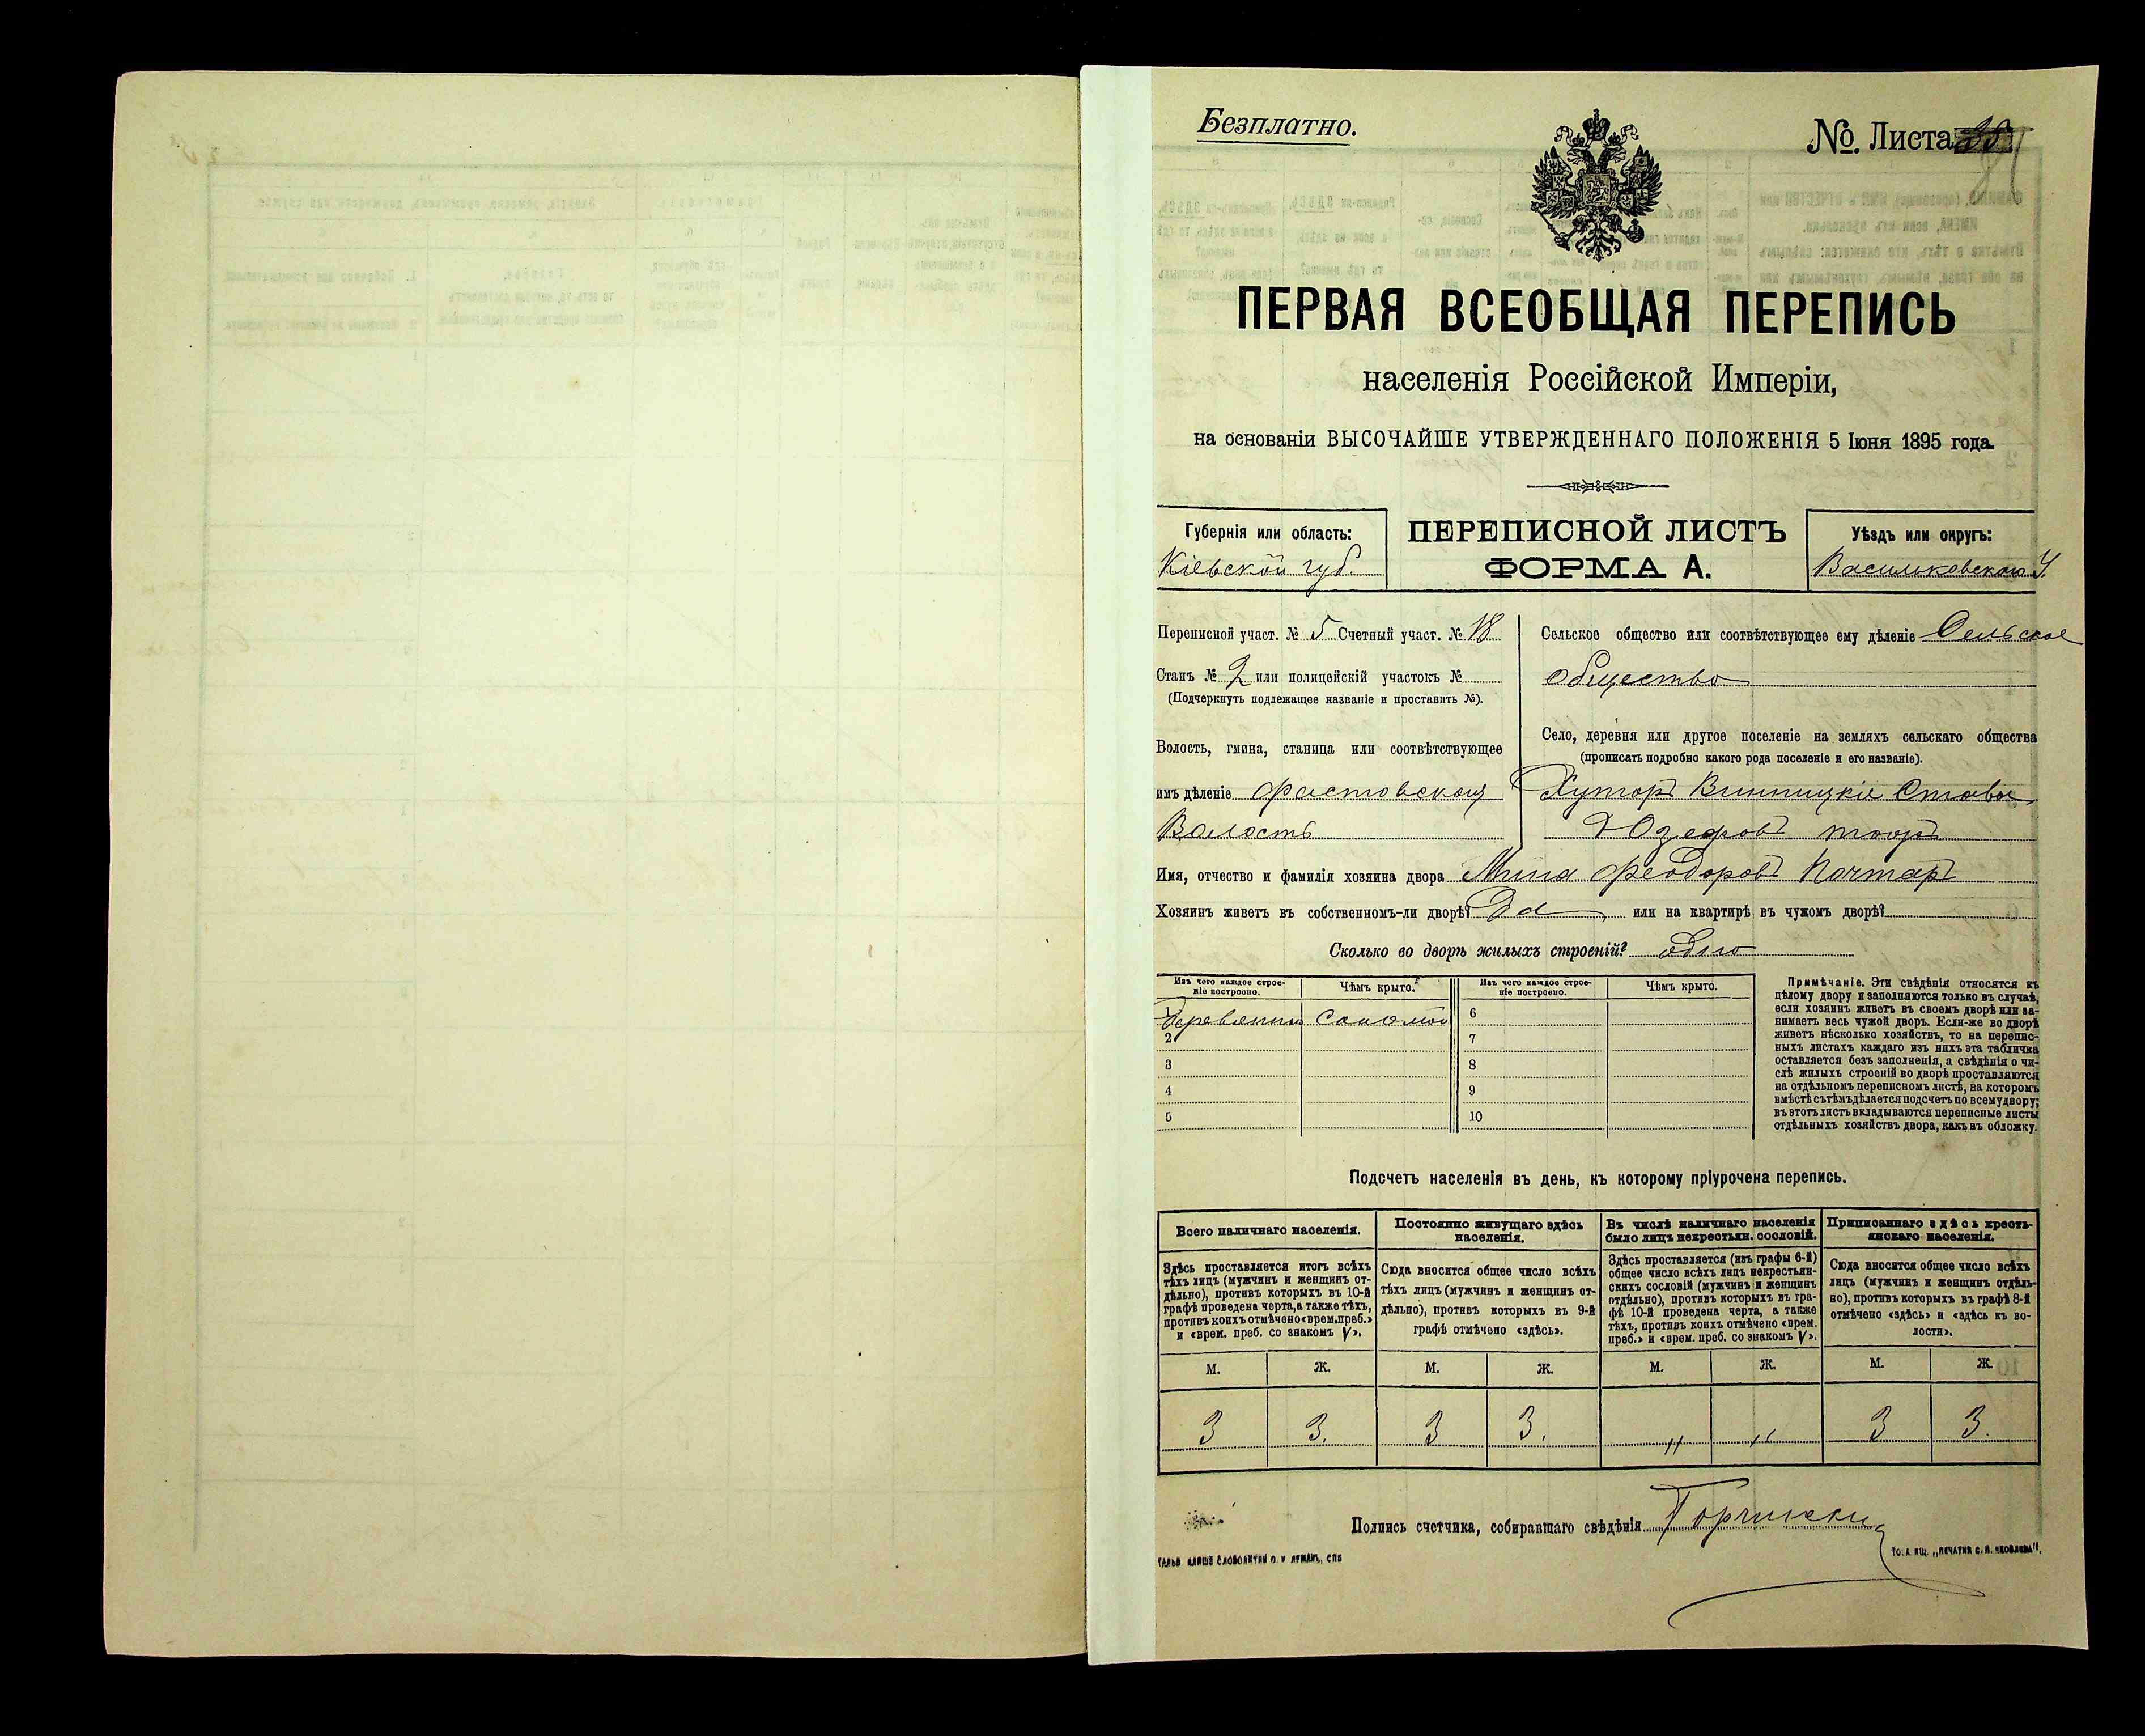 Безплатно.
№. Листа
ПЕРВАЯ ВСЕОБЩАЯ ПЕРЕПИСЬ
населенія Россійской Имперіи,
на основаніи ВЫСОЧАЙШЕ УТВЕРЖДЕННАГО ПОЛОЖЕНІЯ 5 Іюня 1895 года.
Губернія или область:
Кіевской губ.
ПЕРЕПИСНОЙ ЛИСТЪ
ФОРМА А.
Уѣздъ или округъ:
Васильковскаго У.
Переписной участ. № 5 Счетный участ. № 18
Станъ № 2 или полицейскій участокъ №
(Подчеркнуть подлежащее названіе и проставить №).
Волость, гмина, станица или соотвѣтствующее
имъ дѣленіе Фастовская
Волость
Сельское общество или соотвѣтствующее ему дѣленіе Сельское
общество
Село, деревня или другое поселеніе на земляхъ сельскаго общества
(прописать подробно какого рода поселеніе и его названіе).
Хуторъ Винницкіе Ставы
Имя, отчество и фамилія хозяина двора Мина Феодоровъ Почтарь
Хозяинъ живетъ въ собственномъ-ли дворѣ? Да или на квартирѣ въ чужомъ дворѣ?
Сколько во дворѣ жилыхъ строеній? одно
Изъ чего каждое строеніе построено.
Чѣмъ крыто.
Изъ чего каждое строеніе построено.
Чѣмъ крыто.
1 Деревянны Соломой
2
3
4
5
6
7
8
9
10
Примѣчаніе. Эти свѣдѣнія относятся къ
цѣлому двору и заполняются только въ случаѣ,
если хозяинъ живетъ въ своемъ дворѣ или за-
нимаетъ весь чужой дворъ. Если-же во дворѣ
живетъ нѣсколько хозяйствъ, то на перепис-
ныхъ листахъ каждаго изъ нихъ эта табличка
оставляется безъ заполненія, а свѣдѣнія о чи-
слѣ жилыхъ строеній во дворѣ проставляются
на отдѣльномъ переписномъ листѣ, на которомъ
вмѣстѣ съ тѣмъ дѣлается подсчетъ по всему двору;
въ этотъ листъ вкладываются переписные листы
отдѣльныхъ хозяйствъ двора, какъ въ обложку.
Подсчетъ населенія въ день, къ которому пріурочена перепись.
Всего наличнаго населенія.
Здѣсь проставляется итогъ всѣхъ
тѣхъ лицъ (мужчинъ и женщинъ от-
дѣльно), противъ которыхъ въ 10-й
графѣ проведена черта, а также тѣхъ,
противъ коихъ отмѣчено «врем. преб.»
и «врем. преб. со знакомъ V».
М. Ж.
3 3.
Постоянно живущаго здѣсь
населенія.
Сюда вносится общее число всѣхъ
тѣхъ лицъ (мужчинъ и женщинъ от-
дѣльно), противъ которыхъ въ 9-й
графѣ отмѣчено «здѣсь».
М. Ж.
3 3.
Въ числѣ наличнаго населенія
было лицъ некрестьян. сословій.
Здѣсь проставляется (изъ графы 6-й)
общее число всѣхъ лицъ некрестьян-
скихъ сословій (мужчинъ и женщинъ
отдѣльно), противъ которыхъ въ гра-
фѣ 10-й проведена черта, а также
тѣхъ, противъ коихъ отмѣчено «врем.
преб.» и «врем. преб. со знакомъ V».
М. Ж.
" "
Приписаннаго здѣсь кресть-
янскаго населенія.
Сюда вносится общее число всѣхъ
лицъ (мужчинъ и женщинъ отдѣль-
но), противъ которыхъ въ графѣ 8-й
отмѣчено «здѣсь» и «здѣсь въ во-
лости».
М. Ж.
3 3.
Подпись счетчика, собиравшаго свѣдѣнія